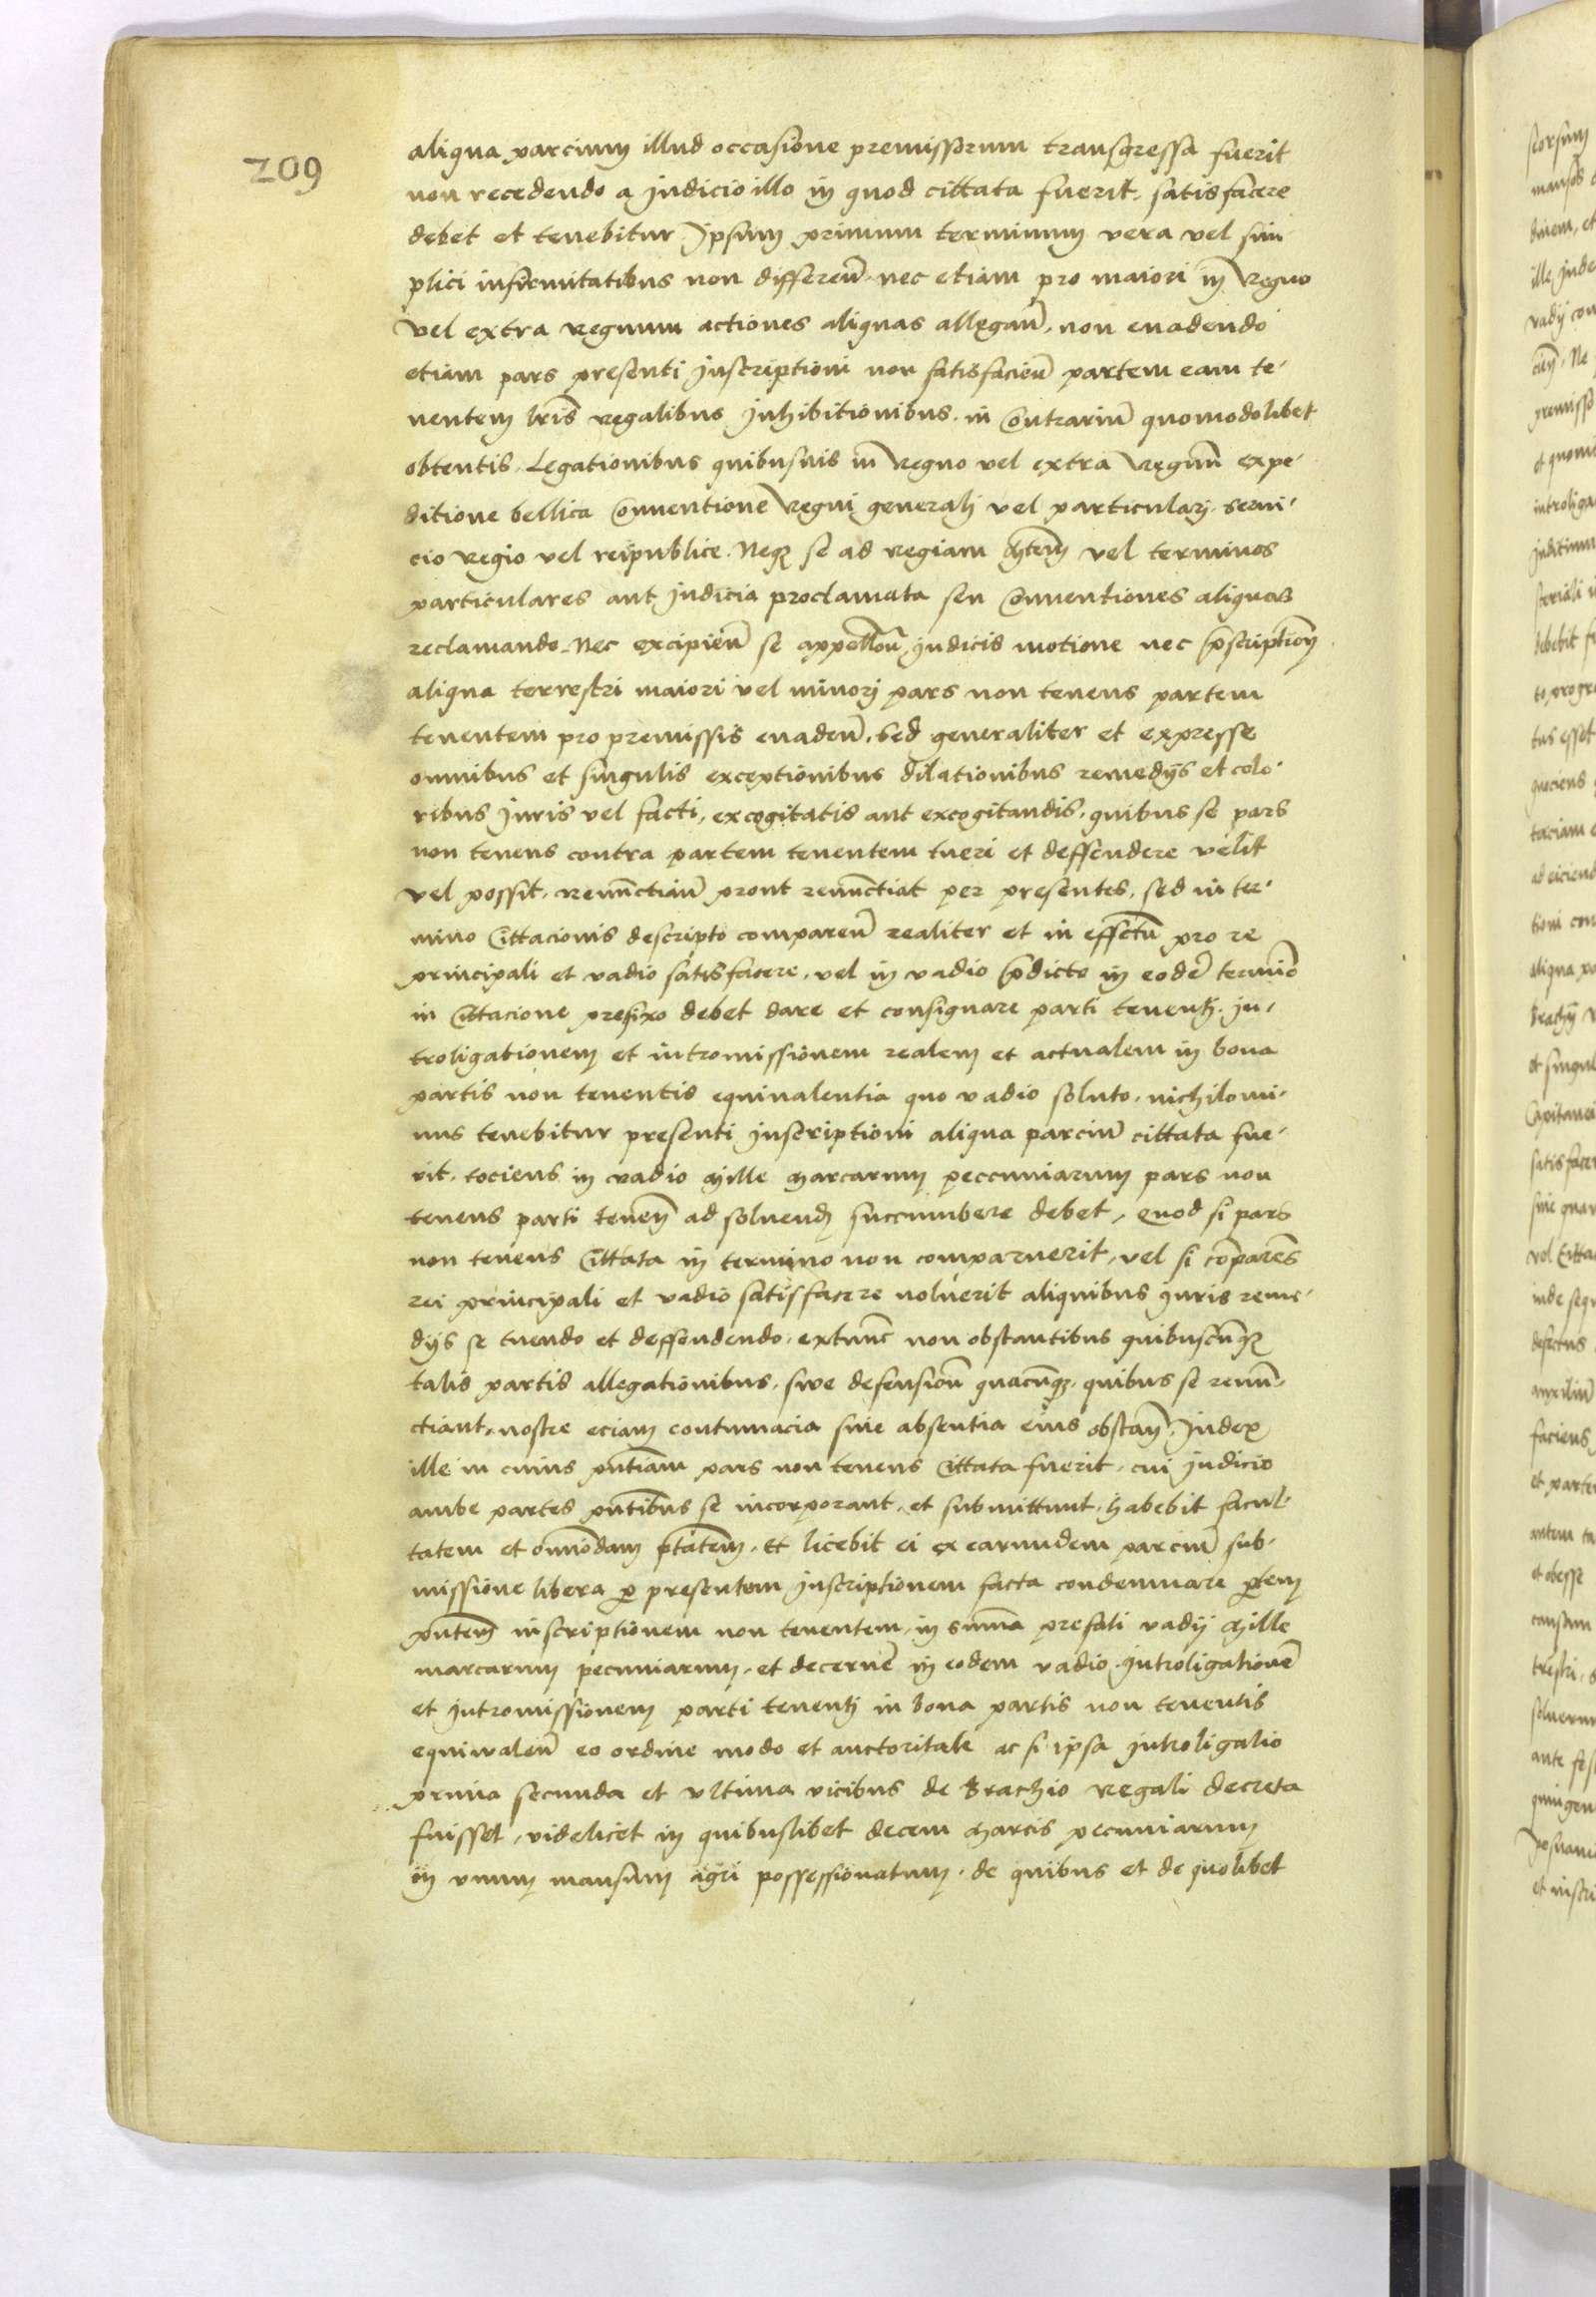 209
aliqua parcium illud occasione premissorum transgressa fuerit
non recedendo a Judicio illo in quod cittata fuerit. satisfacere
debet et tenebitur Ipsum primum terminum vera vel sim-
plici infirmitatibus non differen̄. nec etiam pro maiori in Regno
vel extra Regnum actiones aliquas allegan̄. non euadendo
etiam pars presenti Inscriptioni non satisfacien̄ partem eam te-
nentem l̄ris regalibus Inhibitionibus. in Contrariū quomodolibet
obtentis. Legationibus quibusuis in Regno vel extra Regnū expe-
ditione bellica Conuentione Regni generali vel particulari. serui-
cio Regio vel reipublice. Neqꝫ se ad Regiam M̄tem vel terminos
particulares aut Judicia proclamata seu Conuentiones aliquas
reclamando. Nec excipien̄ se appellōn̄ Judicis motione nec p̄scription̄
aliqua terrestri maiori vel minori pars non tenens partem
tenentem pro premissis euaden̄. Sed generaliter et expresse
omnibus et singulis exceptionibus dilationibus remedijs et colo-
ribus Juris vel facti, excogitatis aut excogitandis. quibus se pars
non tenens contra partem tenentem tueri et deffendere velit
vel possit. renūctian̄ prout renūctiat per presentes. sed in ter-
mino Cittacionis descripto comparen̄ realiter et in effectū pro re
principali et vadio satisfacere. vel in vadio p̄dicto in eodē termīo
in Cittacione prefixo debet dare et consignare parti tenenti. In-
troligationem et intromissionem realem et actualem in bona
partis non tenentis equiualentia quo vadio soluto. nichilomi-
nus tenebitur presenti Inscriptioni aliqua parciū cittata fue-
rit. tociens in vadio Mille Marcarum peccuniarum pars non
tenens parti tenen̄ ad soluend̄ succumbere debet, Quod si pars
non tenens Cittata in termino non comparuerit, vel si cōparens
rei principali et vadio satisfacere noluerit aliquibus Juris reme-
dijs se tuendo et deffendendo. extunc non obstantibus quibuscūqꝫ
talis partis allegationibus. siue defensiōn̄ quacūqꝫ. quibus se renū-
ctiant. nostre eciam contumacia siue absentia eius obstan̄. Judex
ille in cuius p̄ntiam pars non tenens Cittata fuerit. cui Judicio
ambe partes p̄ntibus se incorporant. et submittunt. habebit facul-
tatem et omnīodam p̄tatem. Et licebit ei ex earundem parciū sub-
missione libera p̱ presentem Inscriptionem facta condemnare p̱tem
p̄ntem inscriptionem non tenentem. in summa prefati vadij Mille
marcarum pecuniarum. et decernē in eodem vadio. Introligationē
et Intromissionem parti tenenti in bona partis non tenentis
equiwalen̄ eo ordine modo et auctoritate ac si ipsa Introligatio
prima secunda et vltima vicibus de Brachio Regali decreta
fuisset, videlicet in quibuslibet decem Marcis pecuniarum
in vnum mansum agri possessionatum. de quibus et de quolibet